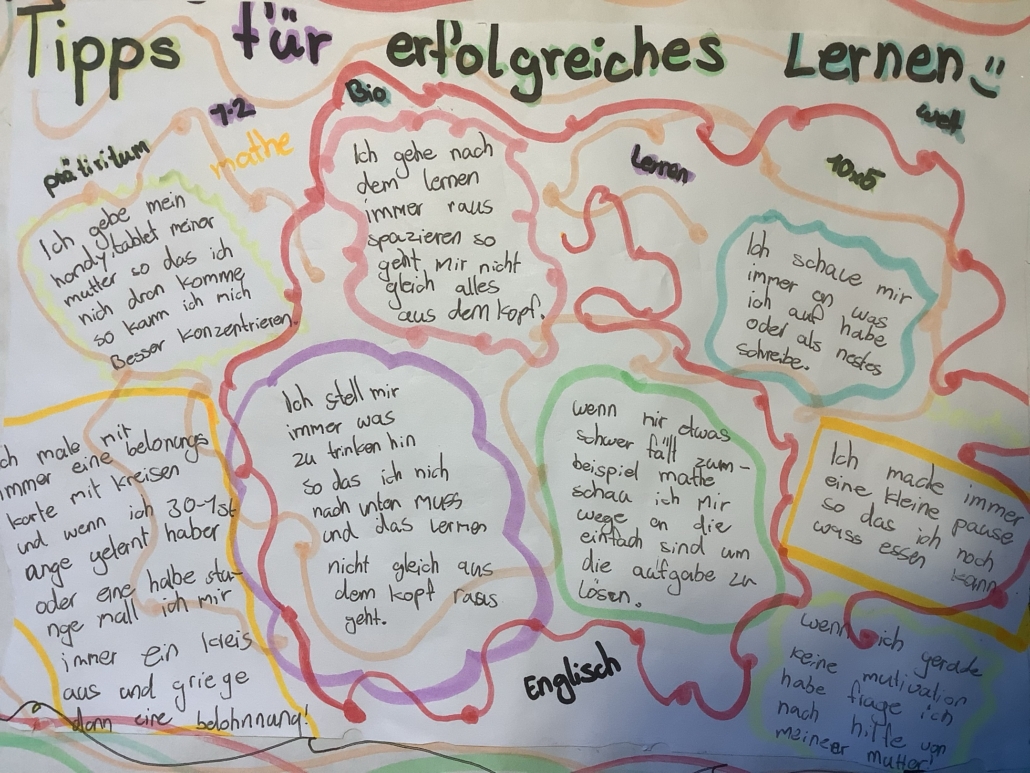 Tipps für erfolgreiches Lernen
prätiritum
1·2
mathe
Bio
Lernen
10x5
welt
Ich gebe mein
handy, tablet meiner
mutter so das ich
nich dran komme
so kann ich mich
Besser konzentrieren.
Ich gehe nach
dem lernen
immer raus
spazieren so
geht mir nicht
gleich alles
aus dem kopf.
Ich schaue mir
immer an was
ich auf habe
oder als nestes
schreibe.
ch male mit
immer eine belonungs
karte mit kreisen
und wenn ich 30-1st
ange gelernt haber
oder eine halbe stu-
nge mall ich mir
immer ein kreis
aus und griege
dann eine belohnnung!
Ich stell mir
immer was
zu trinken hin
so das ich nich
nach unten muss
und das lernen
nicht gleich aus
dem kopf raus
geht.
wenn mir etwas
schwer fäll zum-
beispiel mathe
schau ich mir
wege an die
einfach sind um
die aufgabe zu
lösen.
Ich mache immer
eine kleine pause
so das ich noch
wass essen kann
Englisch
wenn ich gerade
keine mutivation
habe frage ich
nach hilfe von
meineer mutter!